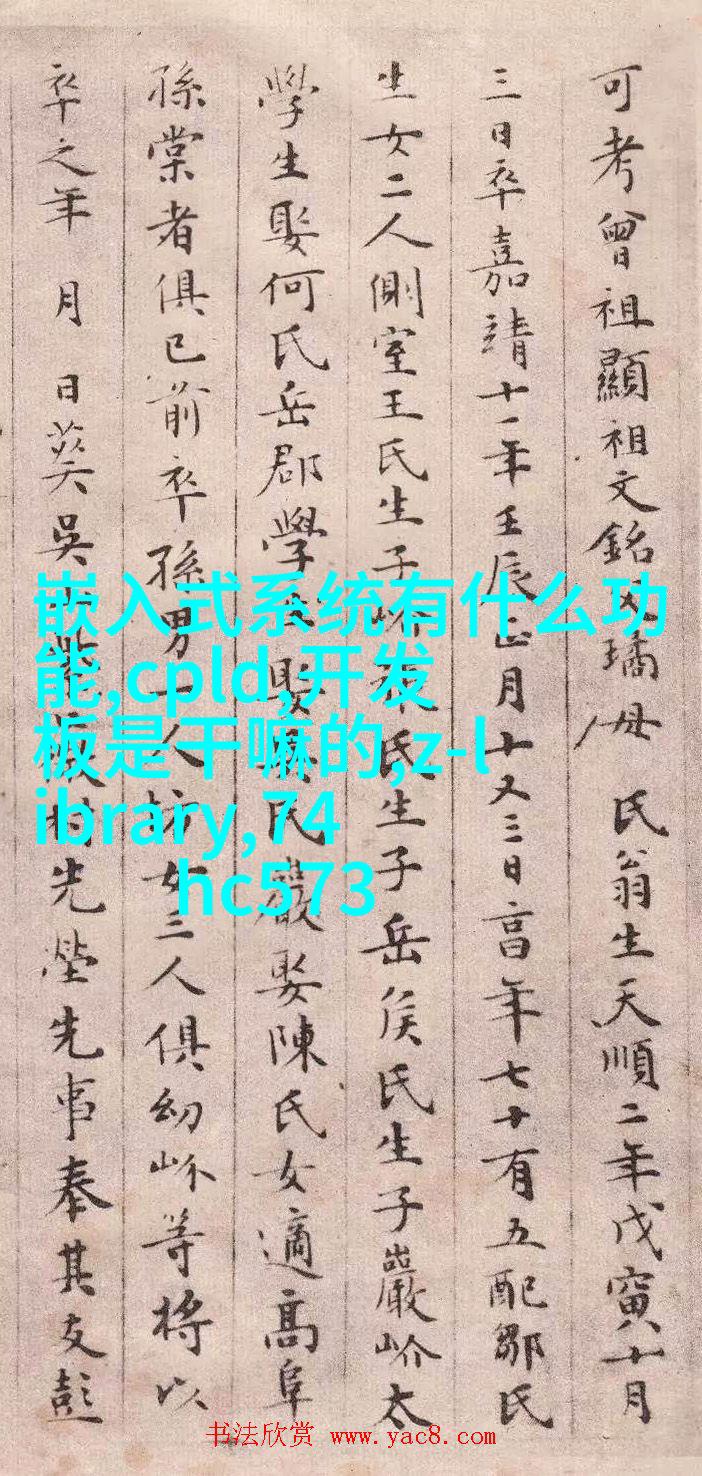 可考曾祖顯祖文銘父璚母 氏翁生天順二年戊寅十月
三日卒嘉靖十一年壬辰正月十又三日亯年七十有五配鄒氏
生女二人側室王氏生子岕氏生子岳侯氏生子巖岕太
學生娶何氏岳郡學生娶氏巖娶陳氏女適高阜
孫棠者俱已前卒孫男一人女三人俱幼岕等將以
卒之年 月 日葬吳村先塋先事奉其友彭
嵌入式系统有什么功
能,cpld,开发
板是干嘛的,z-l
ibrary,74
hc573
书法欣赏 www.yac8.com